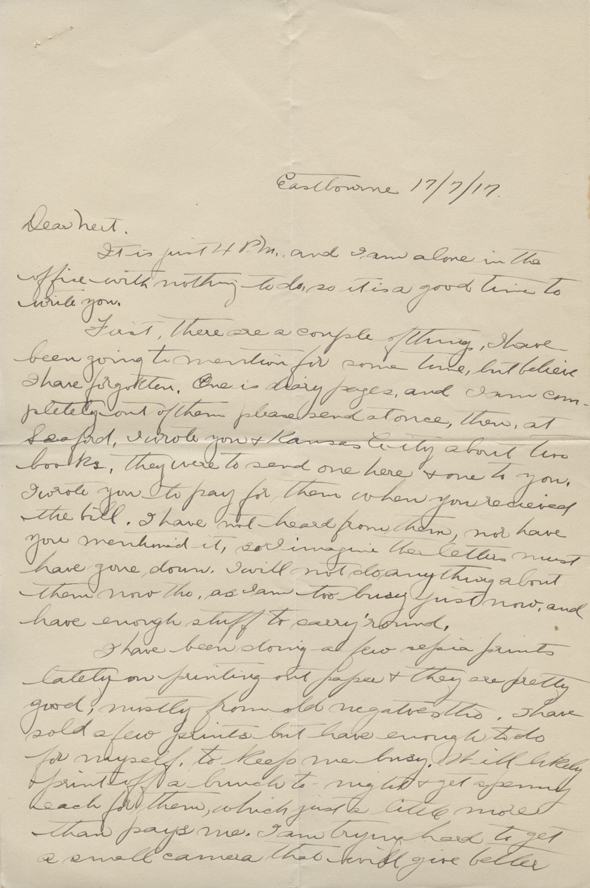 Eastbourne 17/7/17.
Dear Neet.
It is just 4 P.M. and I am alone in the
office with nothing to do, so it is a good time to
write you.
First, there are a couple of things, I have
been going to mention for some time, but believe
I have forgotten. One is diary pages, and I am com-
pletely out of them please send at once, then, at
Seaford, I wrote you & Kansas City about two
books, they were to send one here & one to you.
I wrote you to pay for them when you recieved
the bill. I have not heard from them, nor have
you mentioned it, so I imagine the letters must
have gone down. I will not do anything about
them now tho, as I am too busy just now, and
have enough stuff to carry 'round.
I have been doing a few sepia prints
lately on printing out paper & they are pretty
good, mostly from old negatives tho. I have
sold a few prints but have enough to do
for myself, to keep me busy. Will likely
print off a bunch to-night & get 3 penny
each for them, which just a little more
than pays me. I am trying hard to get
a small camera that will give better